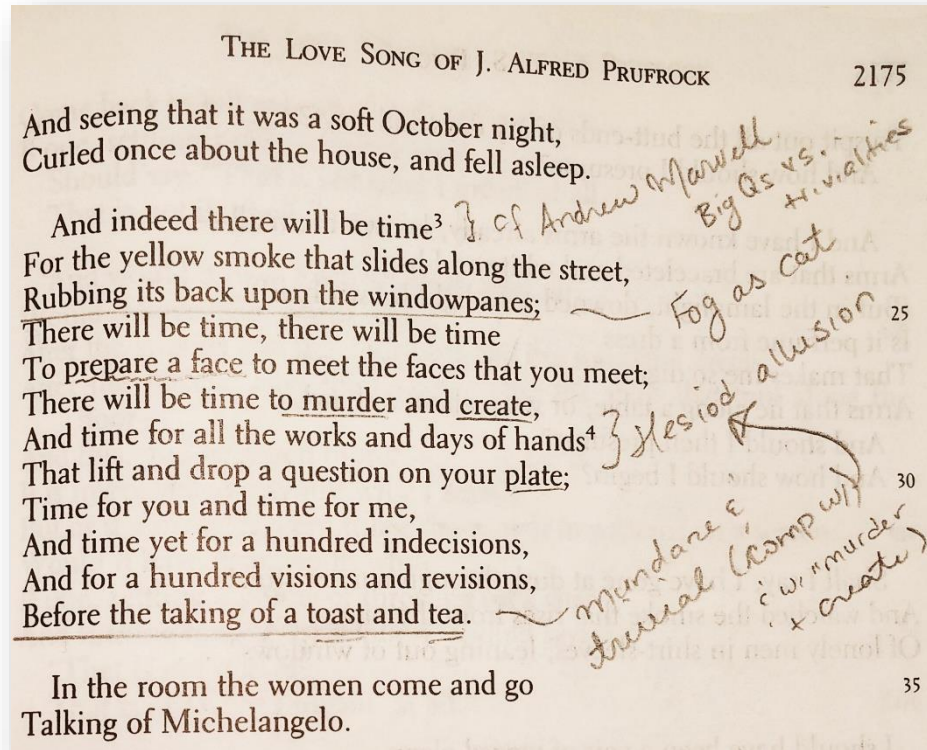 THE LOVE SONG OF J. ALFRED PRUFROCK 2175
And seeing that it was a soft October night,
Curled once about the house, and fell asleep.
Big Qs vs.
trivialities
And indeed there will be time³ } cf Andrew Marvell
For the yellow smoke that slides along the street,
Rubbing its back upon the windowpanes; — Fog as cat 25
There will be time, there will be time
To prepare a face to meet the faces that you meet;
There will be time to murder and create,
And time for all the works and days of hands⁴ } Hesiod allusion
That lift and drop a question on your plate; 30
Time for you and time for me,
And time yet for a hundred indecisions,
And for a hundred visions and revisions,
Before the taking of a toast and tea. — mundane &
trivial (comp w/)
c w. "murder
+ create)
In the room the women come and go 35
Talking of Michelangelo.